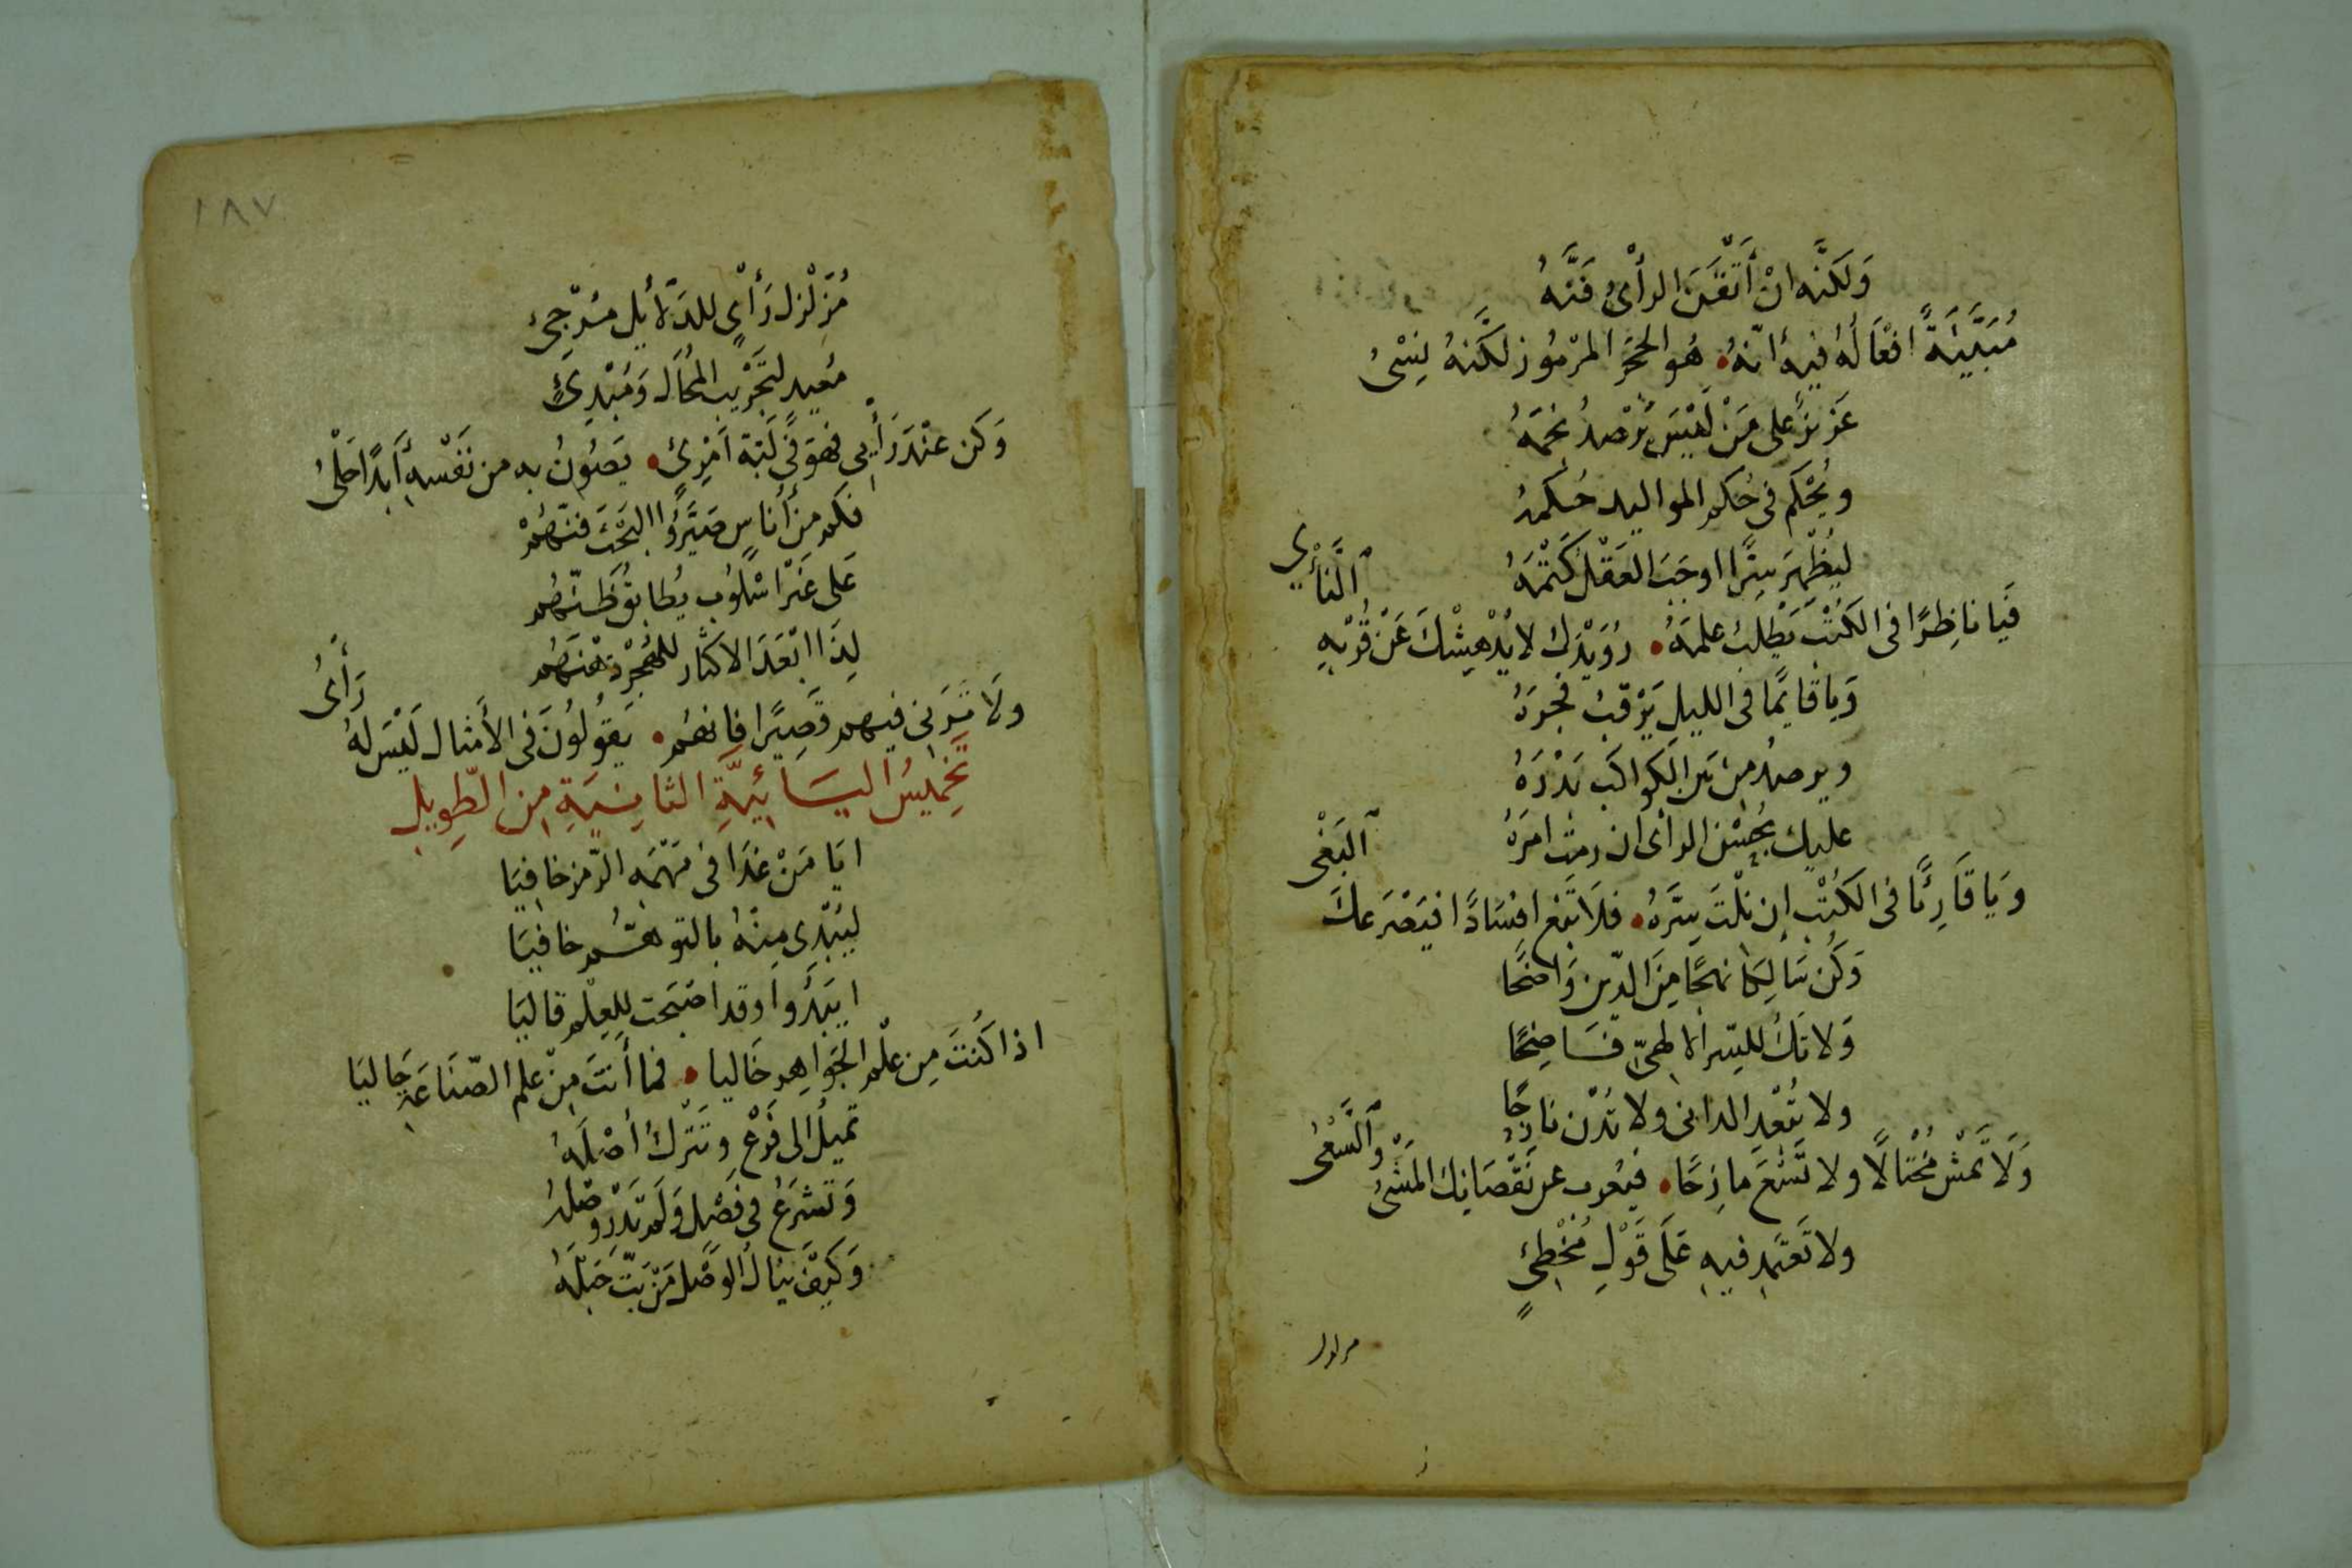 وَلَكنَّه انْ أَتْقَنَ الرأْىُ فَنَّهُ
مُبَيَّنَةً افْعَالُهُ فيهِ انّهُ هُو الحجَرُ المرْمُوز لكَّنهُ نِسْىُ
عَزيزٌ على مَنْ لَيْسَ يَرْصدُ نجمَهُ
ويُحْكم فى حُكم المواليد حُكمهُ
ليُظْهِرَ سِرًّا اوجَبَ العَقْلُ كَتْمَهُ
النَّأْىِ
فَيا نَاظِرًا فى الكُتْبِ يَطْلبُ علمَهُ رُوَيْدَك لا يُدْهِشْكَ عَنْ قُرْبِهِ
وَيا قايمًا فى الليلِ يَرْقبُ فجرَهُ
ويرصدُ مِنْ بَين الكواكب بَدْرَهُ
عليك بحُسْن الرأى ان رمتَ امرَهُ
البَغْى
وَيَا قَارِئًا فى الكُتْبِ إن نلْتَ سِرَّهُ فلَا تَبْغ افسَادًا فيَصْرَعكَ
وَكُن سَالِكا نهجًا مِنَ الدّين وَاضحًا
وَلا تَكُ للسِّر الالهىّ فَاضِحًا
ولا تُبْعِدِ الدانى ولا تُدْن نازِحًا
والسَّعْىُ
وَلَا تَمْشِ مُخْتالًا ولا تَسْعَ مازِحًا فيُعْرب عن نَقْصَانِك المَشْىُ
ولا تَعتَمِد فيهِ عَلَى قَوْلِ مُخْطِئٍ
مزلزل
١٨٧
مُزَلْزل رَأْىٍ للدَّلَايلِ مُرْجِئ
مُعِيد لتَجْريب المُحَال وَمُبْدِئٍ
وَكن عنْدَ رَأْيى فهوَ فى رُتبَة امْرِئٍ يَصُونُ به من نَفْسِهِ أَبَدًا خلْىُ
فكم من أُنَاسٍ صَيَّرُوا البَحْثَ فنّهُمْ
عَلى غَيْر اسْلُوب يُطابقُ ظَنّهُم
لِذَا ابْعَدَ الاكثَار للهُجْر ذِهْنَهُم
رَأْىُ
ولَا تَرَنى فيهم قَصِيًرا فانهُم يَقولُونَ فى الأمثال لَيْسَ لهُ
تخميسُ اليَائيَّةِ الثانيَةِ مِن الطّويلِ
ايَا مَنْ غدَا فى مَهْمَه الرّمز خافيَا
ليُبْدِى مِنْهُ بالتوهُّم خافيَا
ايَبْدُوا وقد اصْبَحتَ للعِلْم قاليَا
اذا كُنتَ مِن علْم الجَوَاهِر خَاليا فما أنتَ مِنْ علم الصّنَاعَةِ جَاليَا
تميلُ الى فَرْعٍ وتَترْكُ أصْلَهُ
وَتَشرَعُ فى فَصْلٍ وَلَم تَدْرِ وصْلهُ
وَكَيْفَ يَنالُ الوَصْل مَنْ بَتَّ حَبْلَهُ